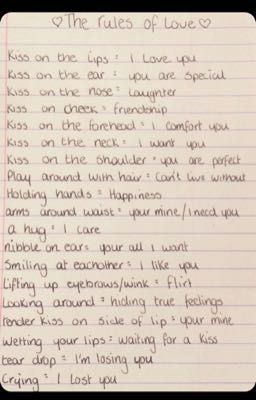 ♡The rules of Love♡
Kiss on the Lips = I Love you
Kiss on the ear = you are special
Kiss on the nose = Laughter
Kiss on cheek = friendship
Kiss on the forehead = I comfort you
Kiss on the neck = I want you
Kiss on the shoulder = you are perfect
Play around with hair = Can't live without
Holding hands = Happiness
arms around waist = your mine/I need you
a hug = I care
nibble on ear = your all I want
Smiling at eachother = I like you
Lifting up eyebrows/wink = flirt
Looking around = hiding true feelings
tender kiss on side of lip = your mine
wetting your lips = waiting for a kiss
tear drop = I'm losing you
Crying = I Lost you